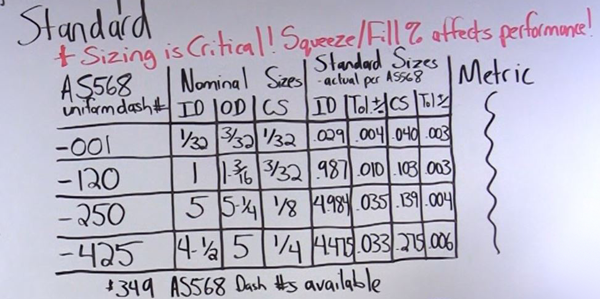 Standard
* Sizing is Critical! Squeeze/Fill % affects performance!
AS568 uniform dash # Nominal Sizes Standard Sizes - actual per AS568 Metric
ID OD CS ID Tol.± CS Tol.±
-001 1/32 3/32 1/32 .029 .004 .040 .003
-120 1 1-3/16 3/32 .987 .010 .103 .003
-250 5 5-1/4 1/8 4.984 .035 .139 .004
-425 4-1/2 5 1/4 4.475 .033 .275 .006
*349 AS568 Dash #s available